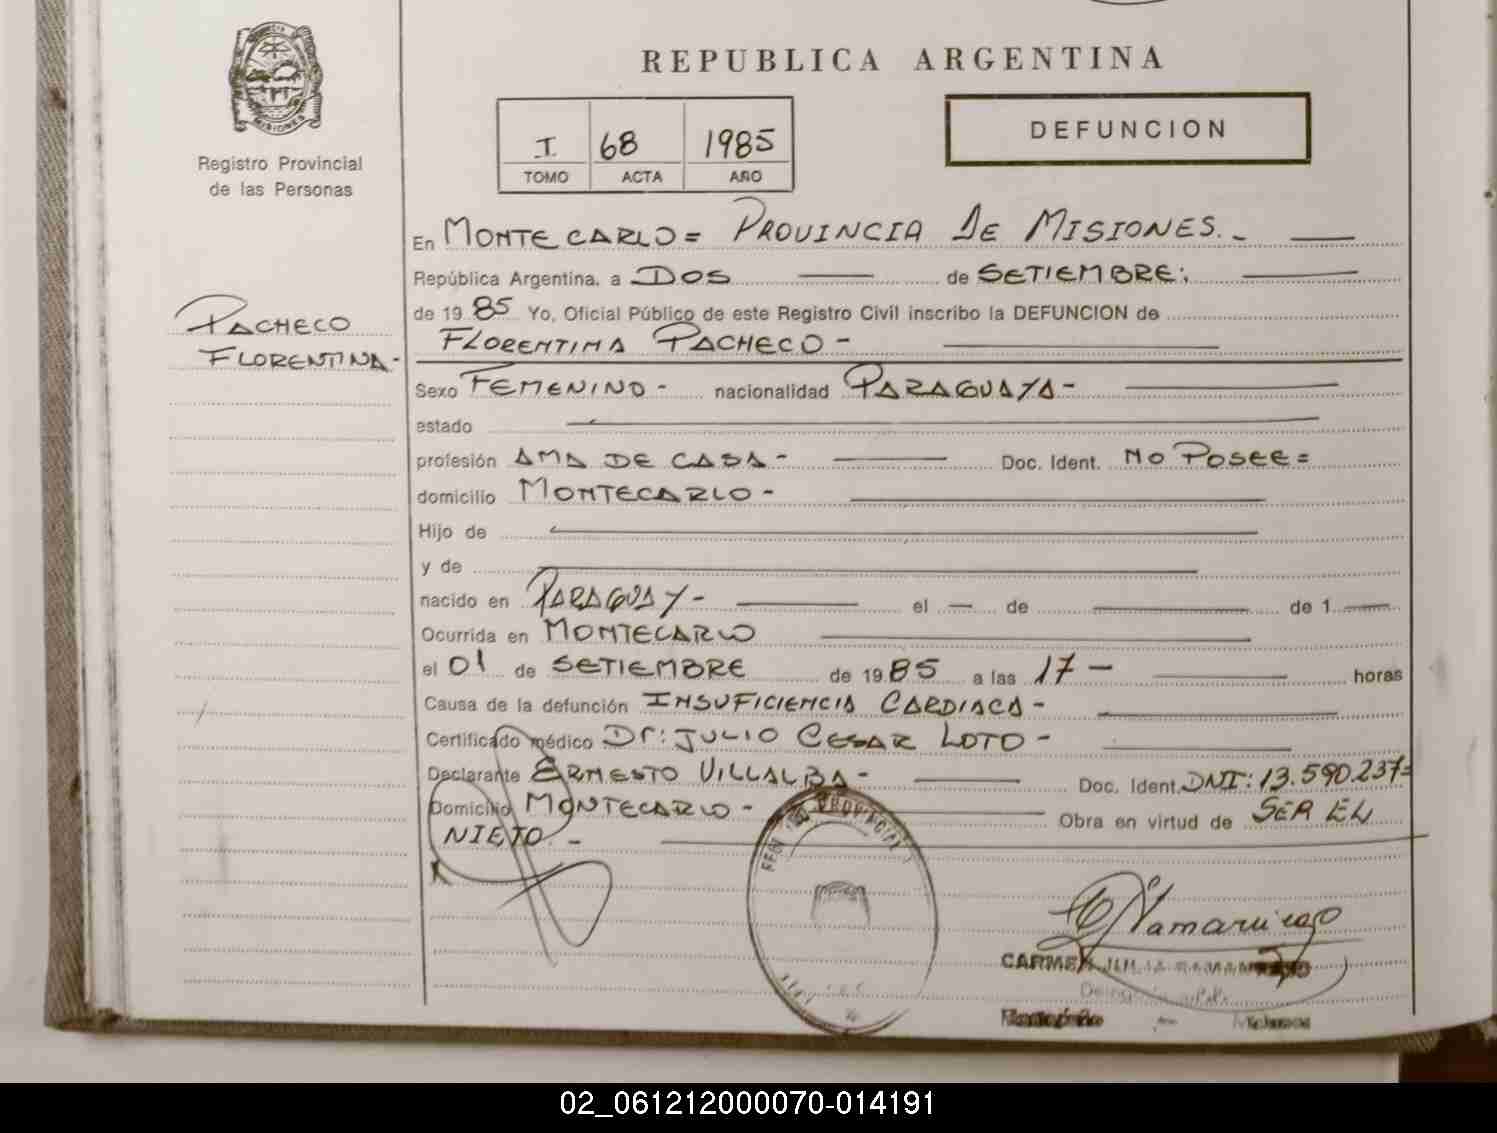 REPUBLICA ARGENTINA
MISIONES
Registro Provincial
de las Personas
I 68 1985
TOMO ACTA AÑO
DEFUNCION
PACHECO
FLORENTINA-
En MONTECARLO= PROVINCIA DE MISIONES.-
República Argentina, a DOS de SETIEMBRE;
de 1985 Yo, Oficial Público de este Registro Civil inscribo la DEFUNCION de
FLORENTINA PACHECO-
Sexo FEMENINO- nacionalidad PARAGUAYA-
estado
profesión AMA DE CASA- Doc. Ident. NO POSEE=
domicilio MONTECARLO-
Hijo de
y de
nacido en PARAGUAY- el de de 1
Ocurrida en MONTECARLO
el 01 de SETIEMBRE de 1985 a las 17- horas
Causa de la defunción INSUFICIENCIA CARDIACA-
Certificado médico Dr: JULIO CESAR LOTO-
Declarante ERNESTO VILLALBA- Doc. Ident. DNI: 13.590.237=
Domicilio MONTECARLO- Obra en virtud de SER EL
NIETO.-
PROVINCIAL
CARMEN
02_061212000070-014191